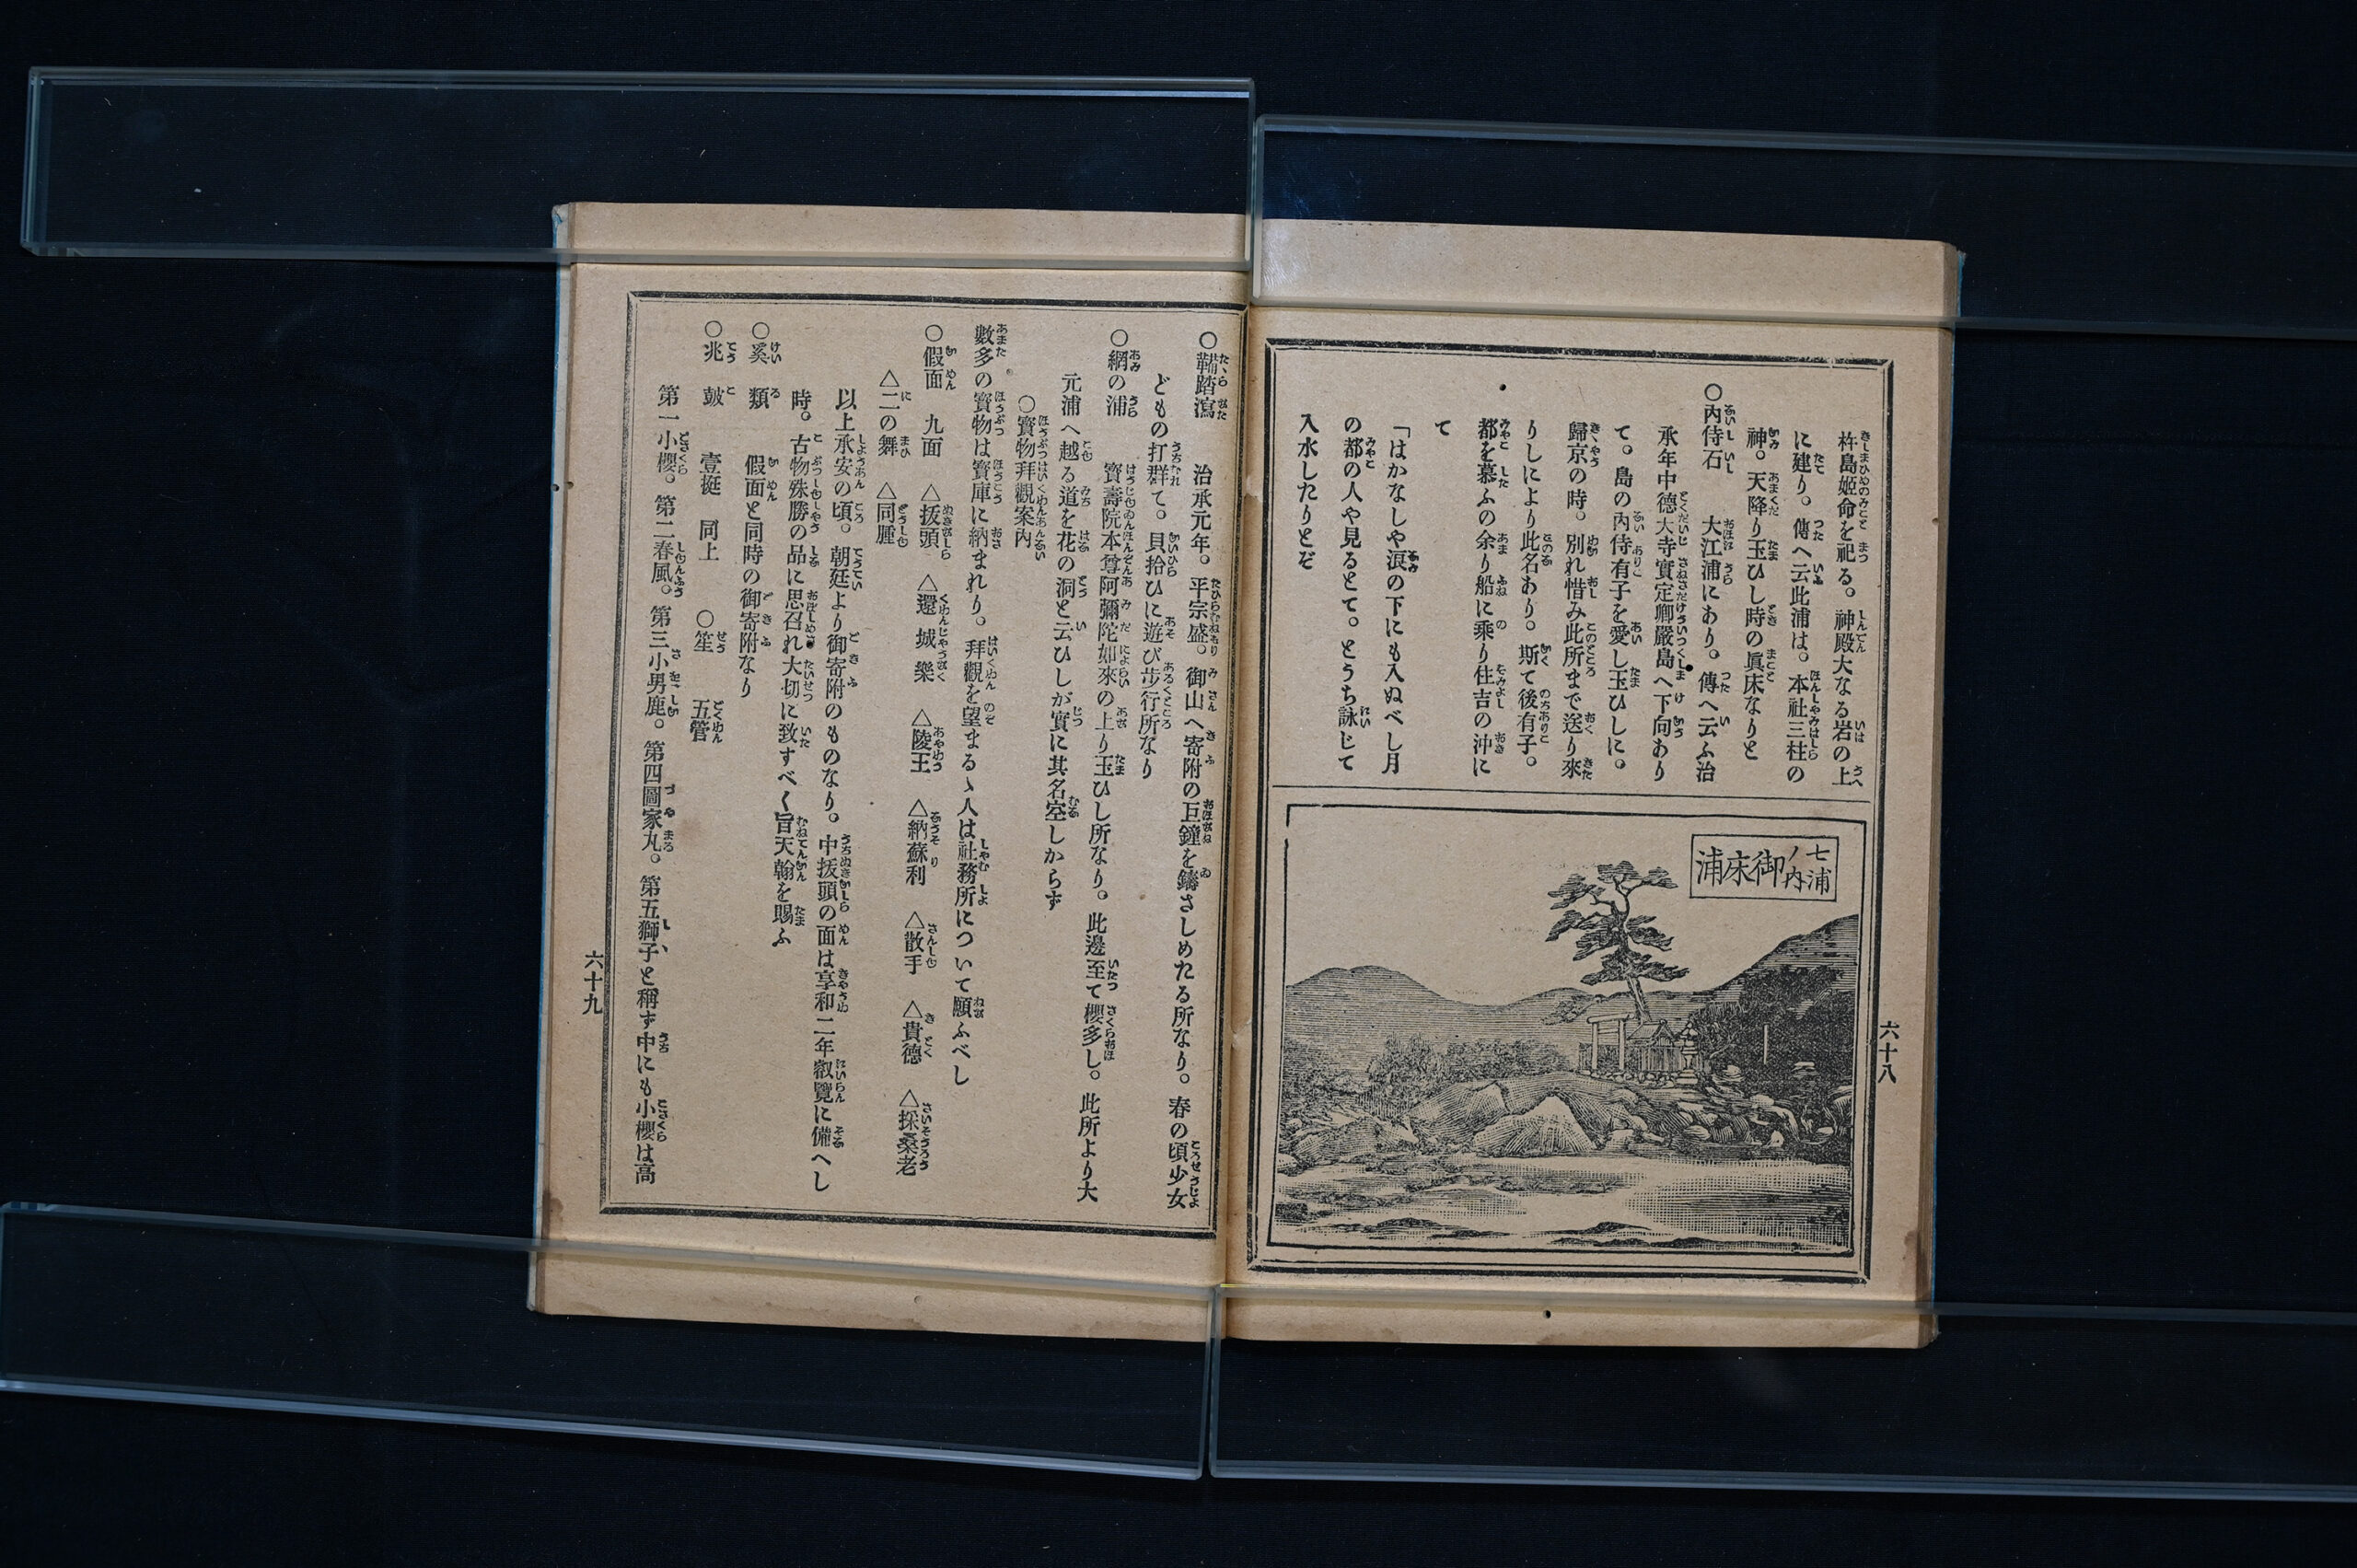 杵島姫命を祀る。神殿大なる岩の上
に建り。傳へ云此浦は。本社三柱の
神。天降り玉ひし時の眞床なりと
○內侍石　大江浦にあり。傳へ云ふ治
承年中德大寺實定卿嚴島へ下向あり
て。島の內侍有子を愛し玉ひしに。
歸京の時。別れ惜み此所まで送り來
りしにより此名あり。斯て後有子。
都を慕ふの余り船に乘り住吉の沖に
て
「はかなしや淚の下にも入ぬべし月
の都の人や見るとて。とうち詠じて
入水したりとぞ
七浦ノ內御床浦
六十八
○鞴踏瀉　治承元年。平宗盛。御山へ寄附の巨鐘を鑄さしめたる所なり。春の頃少女
どもの打群て。貝拾ひに遊び步行所なり
○網の浦　寶壽院本尊阿彌陀如來の上り玉ひし所なり。此邊至て櫻多し。此所より大
元浦へ越る道を花の洞と云ひしが實に其名空しからず
○寶物拜觀案內
數多の寶物は寶庫に納まれり。拜觀を望まるゝ人は社務所について願ふべし
○假面　九面　△拔頭　△還城樂　△陵王　△納蘇利　△散手　△貴德　△採桑老
△二の舞　△同腫
以上承安の頃。朝廷より御寄附のものなり。中拔頭の面は享和二年叡覽に備へし
時。古物殊勝の品に思召れ大切に致すべく旨天翰を賜ふ
○奚類　假面と同時の御寄附なり
○兆鼓　壹挺　同上　○笙　五管
第一小櫻。第二春風。第三小男鹿。第四圖家丸。第五獅子と稱ず中にも小櫻は高
六十九